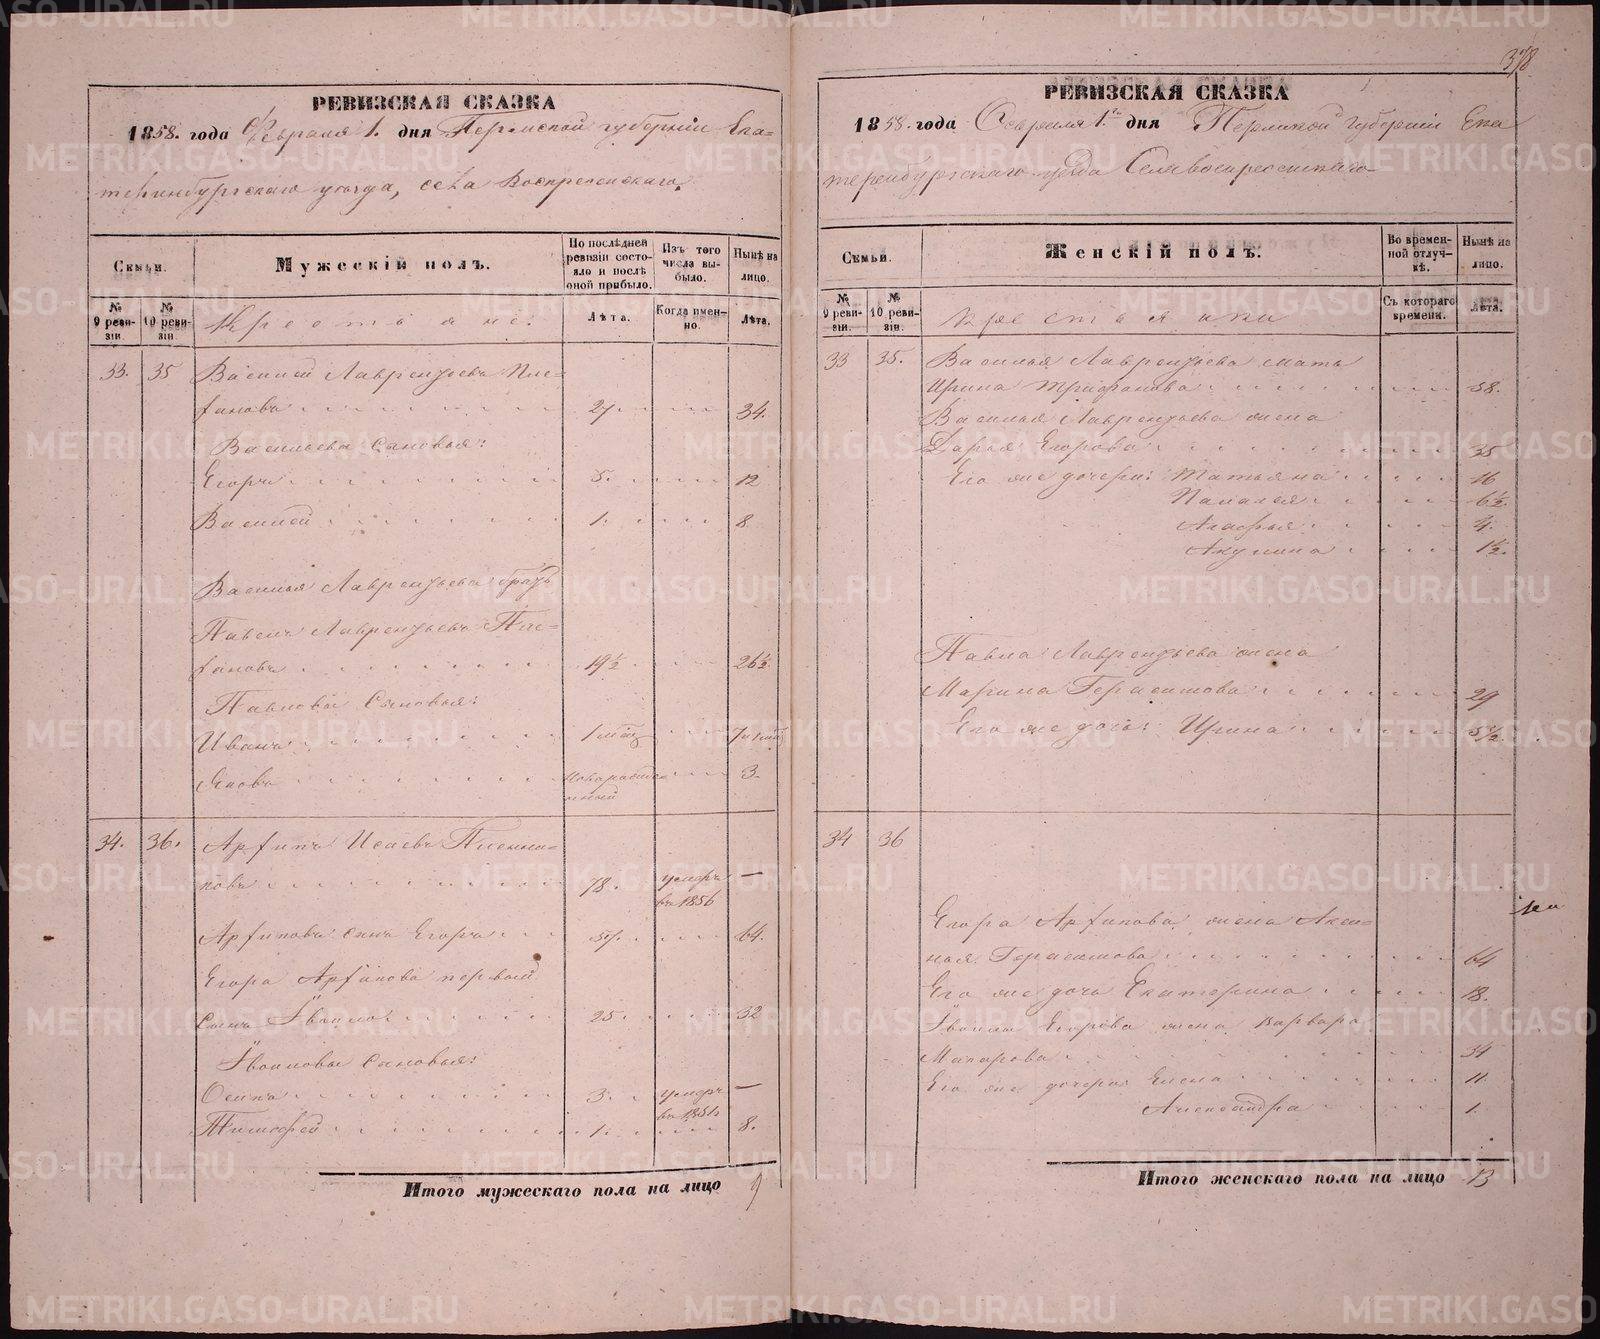 378
РЕВИЗСКАЯ СКАЗКА
1858. года Февраля 1. дня Пермской губернiи Ека-
теринбургскаго уѣзда, села Воскресенскаго.
Семьи.
Мужескiй полъ.
По послѣдней ревизiи состояло и послѣ оной прибыло.
Изъ того числа выбыло.
Нынѣ на лицо.
№ 9 ревизiи.
№ 10 ревизiи.
Крестьяне:
Лѣта.
Когда именно.
Лѣта.
33. 35 Василiй Лаврентьевъ
27. 34.
Васильевы Сыновья:
Егоръ 5. 12
Василiй 1. 8
Василья Лаврентьева братъ
Павелъ Лаврентьевъ
19½ 26½
Павловы Сыновья:
Иванъ 1 7
Яковъ Новорожденный 3.
34. 36. Архипъ Исаевъ
78. умеръ въ 1856 —
Архиповъ сынъ Егоръ 57. 64.
Егора Архипова первый
сынъ 25. 32
Сыновья:
Осипъ 3. умеръ въ 1851 —
Тимофей 1. 8.
Итого мужескаго пола на лицо 9
РЕВИЗСКАЯ СКАЗКА
1858. года Февраля 1. дня Пермской губернiи Ека
теринбургскаго уѣзда Села Воскресенскаго
Семьи.
Женскiй полъ.
Во временной отлучкѣ.
Нынѣ на лицо.
№ 9 ревизiи.
№ 10 ревизiи.
Крестьянки
Съ котораго времени.
Лѣта.
33 35. Василья Лаврентьева мать
Ирина Трифанова 58.
Василья Лаврентьева жена
Дарья Егорова 35
Его же дочери: Татьяна 16
Палагея 6½.
Агафья 4.
Акулина 1½.
Павла Лаврентьева жена
Марина Герасимова 29
Его же дочь: Ирина 5½
34 36
Егора Архипова жена Аксинья Герасимова 64
Его же дочь Екатерина 18.
Егорова жена Варвара
Макарова 34
Его же дочери Елена 11.
Александра 1.
Итого женскаго пола на лицо 13
METRIKI.GASO-URAL.RU